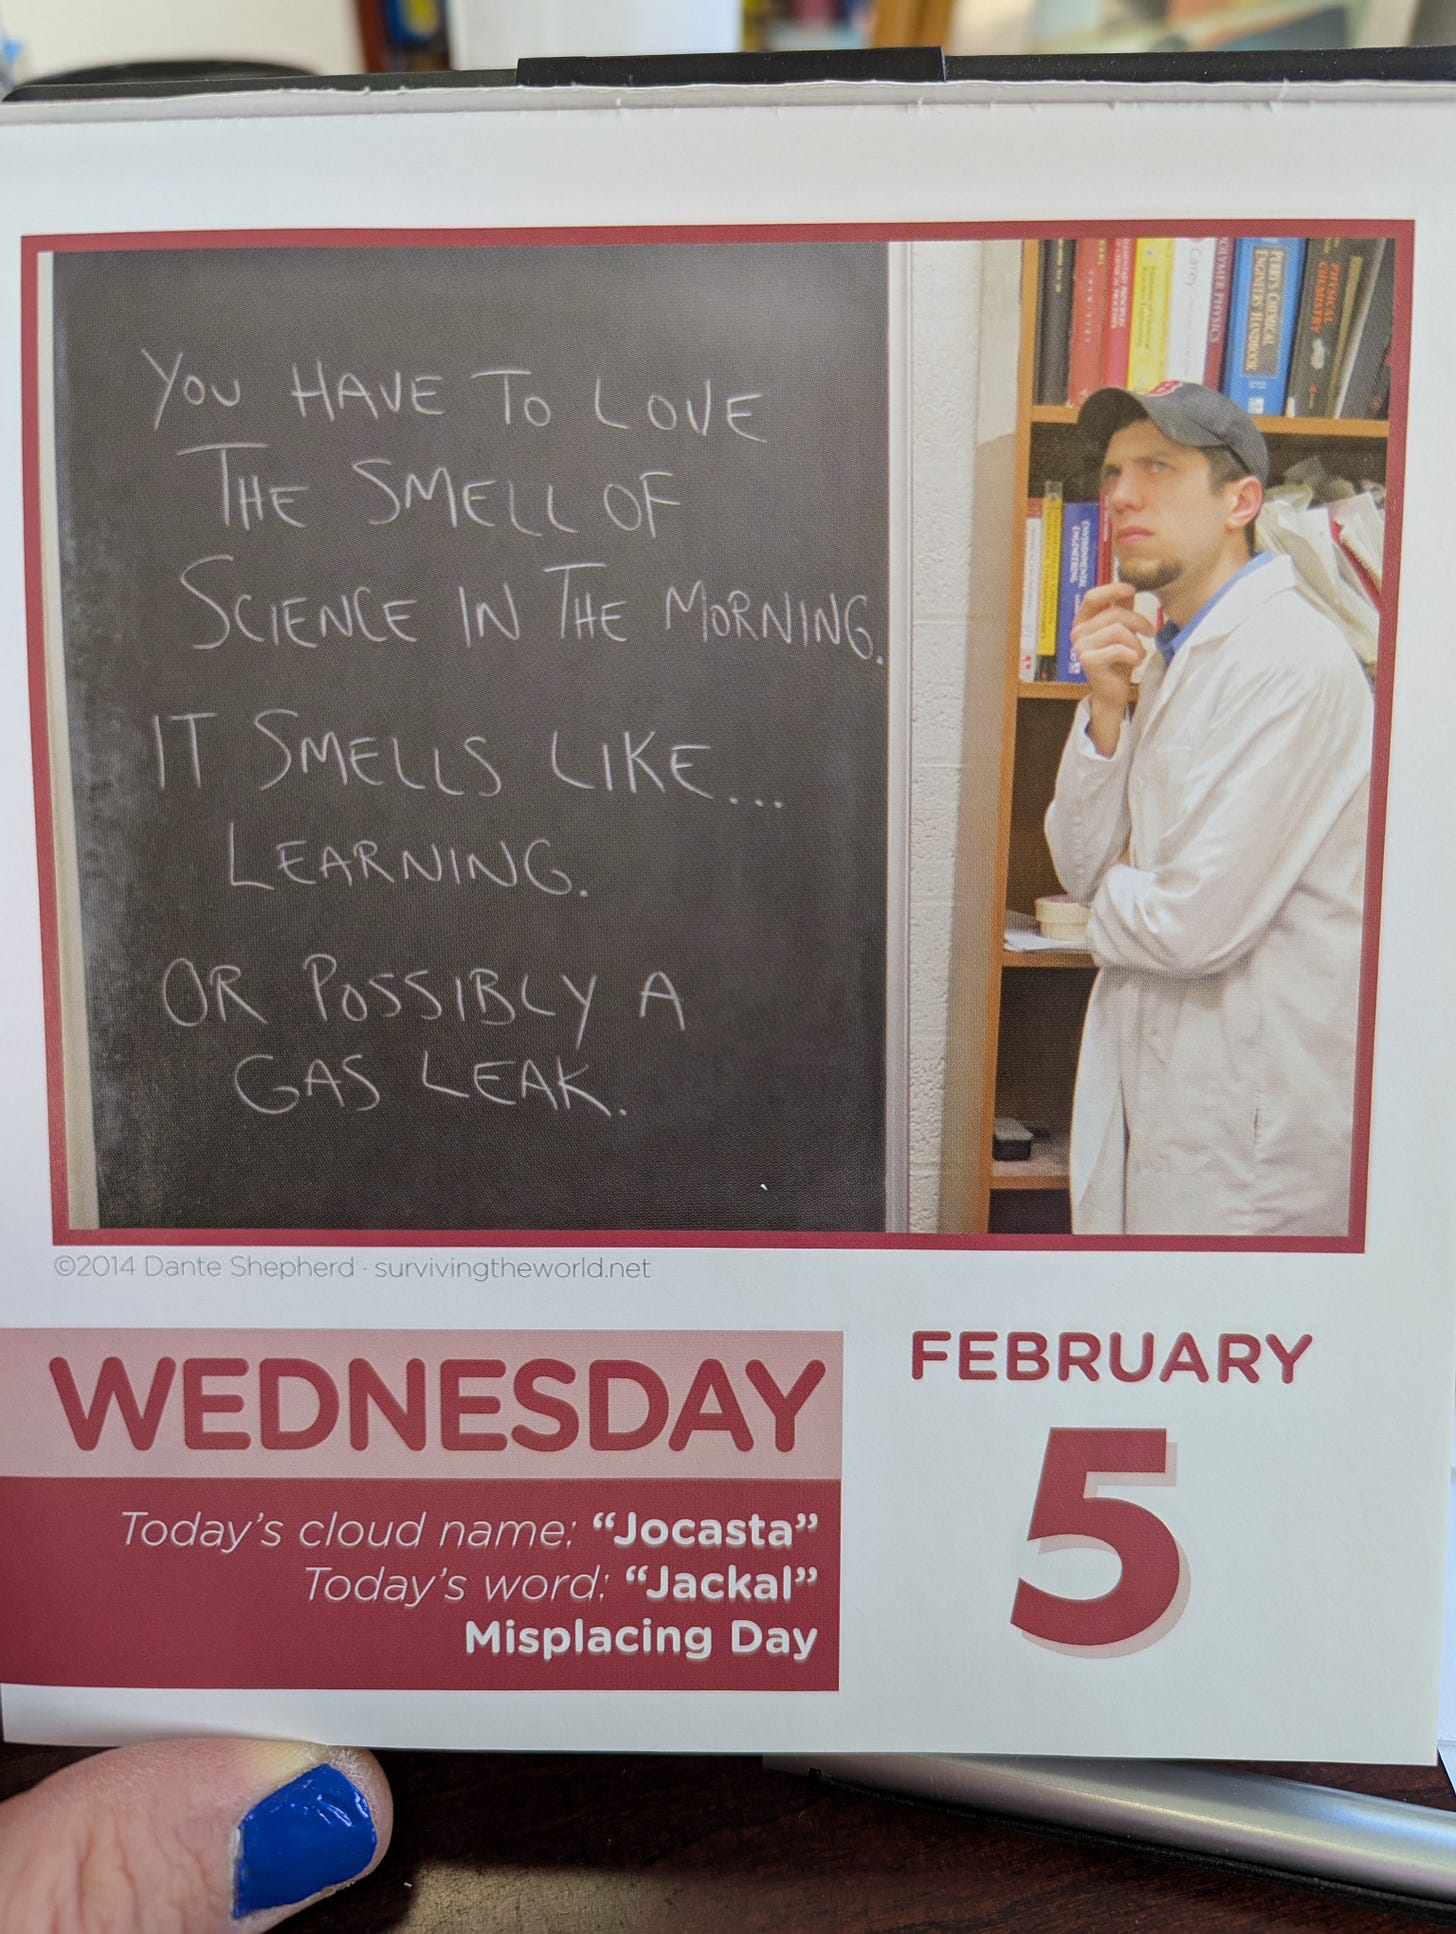 YOU HAVE TO LOVE
THE SMELL OF
SCIENCE IN THE MORNING.
IT SMELLS LIKE...
LEARNING.
OR POSSIBLY A
GAS LEAK.
Carey
POLYMER PHYSICS
PERRY'S CHEMICAL
ENGINEERS' HANDBOOK
PHYSICAL
CHEMISTRY
ENVIRONMENTAL
ENGINEERING
©2014 Dante Shepherd · survivingtheworld.net
WEDNESDAY
Today's cloud name: “Jocasta”
Today's word: “Jackal”
Misplacing Day
FEBRUARY
5